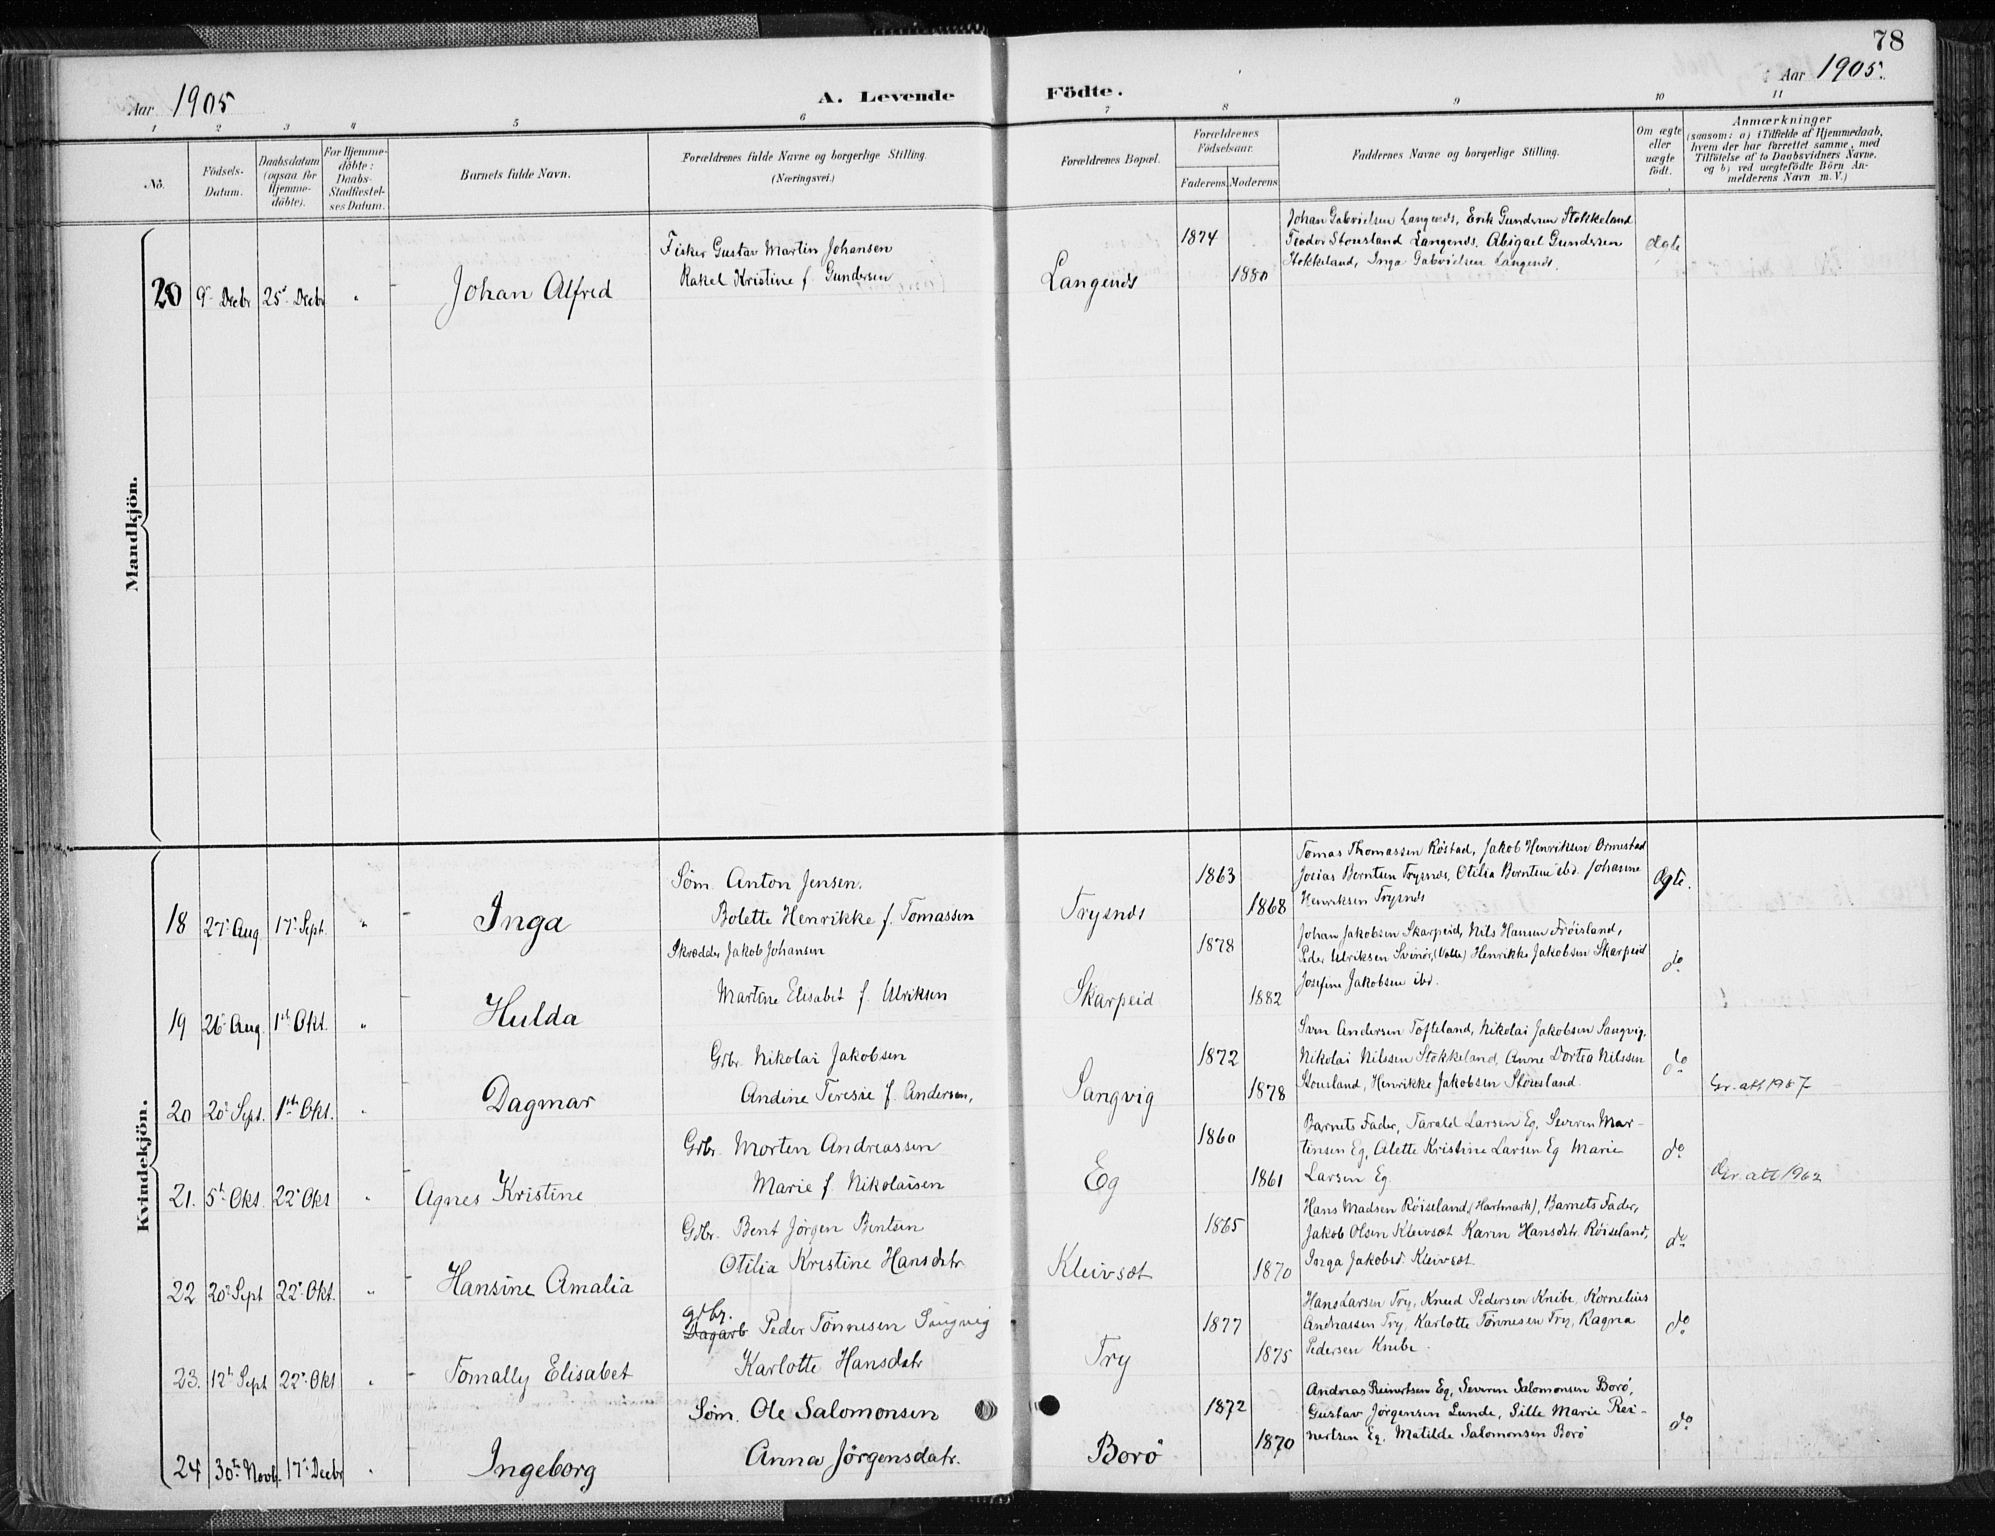 78
Aar 1905
A. Levende
Födte.
Aar 1905.
1 2 3 4 5 6 7 8 9 10 11
No.
Födsels-
Datum.
Daabsdatum
(ogsaa for
Hjemme-
döbte).
For Hjemme-
döbte:
Daabs-
Stadfæstel-
ses Datum.
Barnets fulde Navn.
Forældrenes fulde Navne og borgerlige Stilling.
(Næringsvei.)
Forældrenes Bopæl.
Forældrenes
Födselsaar.
Faderens Moderens
Faddernes Navne og borgerlige Stilling.
Om ægte
eller
uægte
födt.
Anmærkninger
(saasom: a) i Tilfælde af Hjemmedaab,
hvem der har forrettet samme, med
Tilföielse af to Daabsvidners Navne,
og b) ved uægtefödte Börn An-
melderens Navn m. V.)
Mandkjön.
20 9' Decbr 25' Decbr " Johan Alfred
Fisker Gustav Martin Johansen
Rakel Kristine f. Gundersen
Langenes
1874
1880
Johan Gabrielsen Langenes, Erik Gundersen Stokkeland
Teodor Stousland Langenes, Abigael Gundersen
Stokkeland, Inga Gabrielsen Langenes.
ægte
Kvindekjön.
18 27' Aug. 17' Sept. " Inga
Søm. Anton Jensen.
Bolette Henrikke f. Tomassen
Trysnes
1863
1868
Tomas Thomassen Röstad, Jakob Henriksen Ormestad
Josias Berntsen Trysnes, Otilia Berntsen ibd. Johanne
Henriksen Trysnes
ægte.
19 26' Aug. 1st Okt. " Hulda
Skrædder Jakob Johansen
Martine Elisabet f. Ulriksen
Skarpeid
1878
1882
Johan Jakobsen Skarpeid, Nils Hansen Fröisland,
Peder Ulriksen Svinör, (Valle) Henrikke Jakobsen Skarpeid
Josefine Jakobsen ibd.
do
20 20' Sept. 1st Okt. " Dagmar
Grbr. Nikolai Jakobsen
Andine Teresie f. Andersen,
Sangvig
1872
1878
Sven Andersen Tofteland, Nikolai Jakobsen Sangvig.
Nikolai Nilssen Stokkeland, Anne Dortea Nilssen
Stousland, Henrikke Jakobsen Stousland.
do
Gr. att 1957
21. 5t Okt. 22' Okt " Agnes Kristine
Grbr. Morten Andreassen
Marie f. Nikolaisen
Eg
1860
1861
Barnets Fader, Tarald Larsen Eg, Severin Mar-
tinsen Eg, Alette Kristine Larsen Eg Marie
Larsen Eg.
do
Gr. att 1962
22 20' Sept 22' Okt. " Hansine Amalia
Grbr. Bent Jörgen Bentsen
Otilia Kristine Hansdatr.
Kleivsæt
1865
1870
Hans Madsen Röiseland, (Hartmark), Barnets Fader,
Jakob Olsen Kleivsæt Karen Hansdtr. Röiseland,
Inga Jakobsd. Kleivsæt.
do
23. 12t Sept 22' Okt " Tomally Elisabet
grbr.
Dagarb Peder Tönnesen Sangvig
Karlotte Hansdatr
Try
1877
1875
Hans Larsen Try, Knud Pedersen Knibe, Kornelius
Andreassen Try, Karlotte Tönnesen Try, Ragna
Pedersen Knibe.
do
24 30t Novbr. 17' Decbr " Ingeborg
Søm. Ole Salomonsen
Anna Jörgensdatr.
Borö
1872
1870
Andreas Reinertsen Eg, Severin Salomonsen Borö,
Gustav Jörgensen Lunde, Sille Marie Rei-
nertsen Eg, Matilde Salomonsen Borö
do